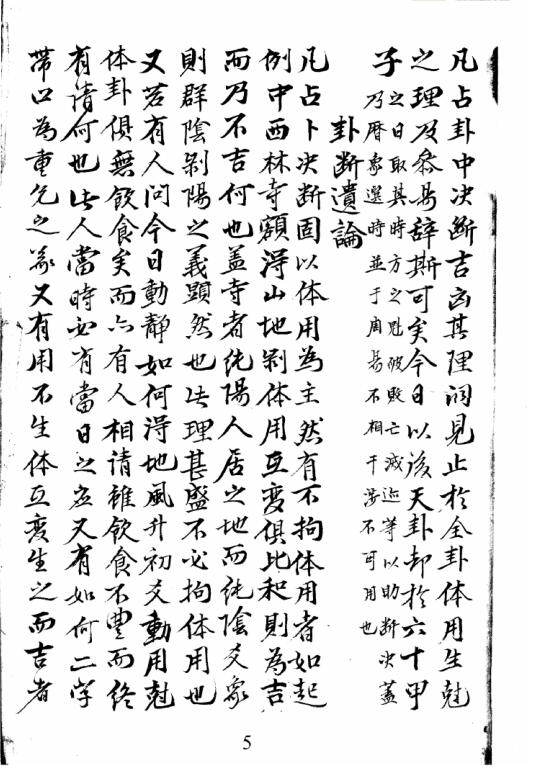 凡占卦中决断吉凶其理洞見止於全卦体用生尅
之理及叅易辞斯可矣今日以後天卦却於六十甲
子之日取其時方之尅破敗亡滅迹等以助断决蓋
乃曆象選時並于周易不相干渉不可用也
卦断遺論
凡占卜决断固以体用為主然有不拘体用者如起
例中西林寺額得山地剝体用互变俱比和則為吉
而乃不吉何也盖寺者純陽人居之地而純陰爻象
則群陰剝陽之義顕然也此理甚盛不必拘体用也
又若有人问今日動静如何得地風升初爻動用尅
体卦俱無飲食矣而亦有人相請雖飲食不豊而终
有请何也此人當時必有當日之应又有如何二字
帶口為重兌之象又有用不生体互变生之而吉者
5